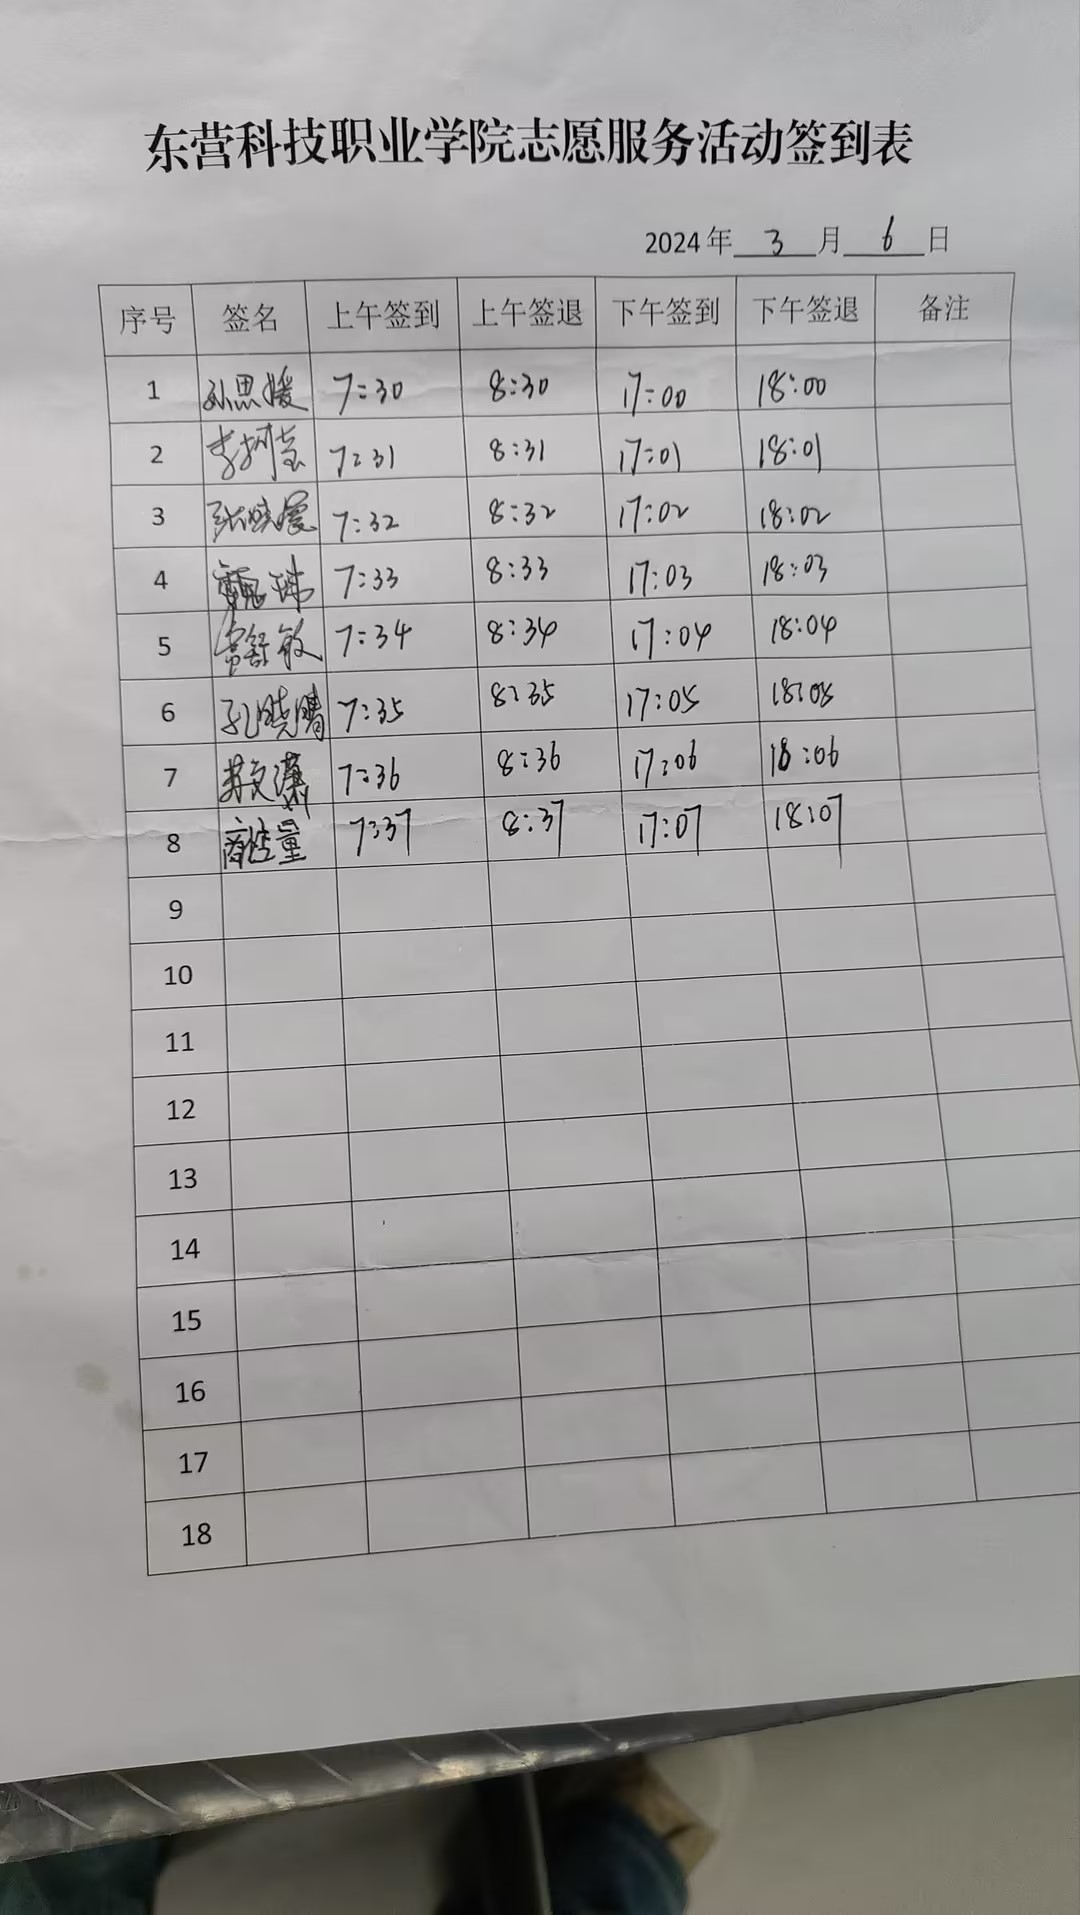 东营科技职业学院志愿服务活动签到表
2024年 3 月 6 日
序号 签名 上午签到 上午签退 下午签到 下午签退 备注
1 孙思媛 7:30 8:30 17:00 18:00
2 李树莹 7:31 8:31 17:01 18:01
3 张晓 7:32 8:32 17:02 18:02
4 魏珠 7:33 8:33 17:03 18:03
5 常舒敏 7:34 8:34 17:04 18:04
6 孔晓晴 7:35 8:35 17:05 18:05
7 苏文潇 7:36 8:36 17:06 18:06
8 商佳量 7:37 8:37 17:07 18:07
9
10
11
12
13
14
15
16
17
18